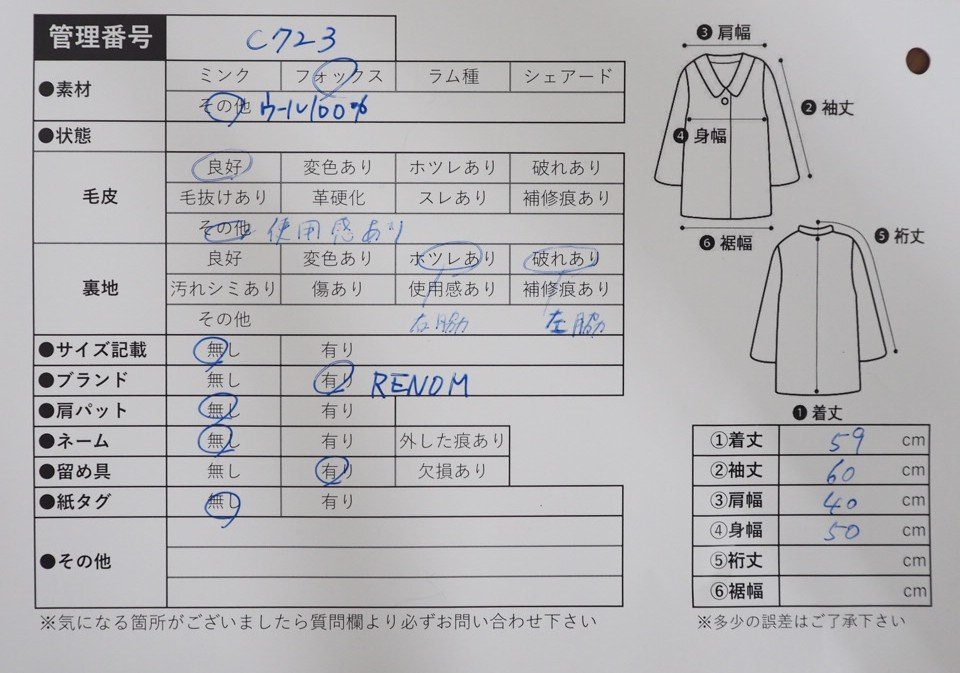 管理番号 C723
●素材 ミンク フォックス ラム種 シェアード
その他 ウール100%
●状態
毛皮 良好 変色あり ホツレあり 破れあり
毛抜けあり 革硬化 スレあり 補修痕あり
その他 使用感あり
裏地 良好 変色あり ホツレあり 破れあり
汚れシミあり 傷あり 使用感あり 補修痕あり
その他 右脇 左脇
●サイズ記載 無し 有り
●ブランド 無し 有り RENOM
●肩パット 無し 有り
●ネーム 無し 有り 外した痕あり
●留め具 無し 有り 欠損あり
●紙タグ 無し 有り
●その他
※気になる箇所がございましたら質問欄より必ずお問い合わせ下さい
❸ 肩幅
❷ 袖丈
❹ 身幅
❻ 裾幅
❺ 裄丈
❶ 着丈
①着丈 59 cm
②袖丈 60 cm
③肩幅 40 cm
④身幅 50 cm
⑤裄丈 cm
⑥裾幅 cm
※多少の誤差はご了承下さい